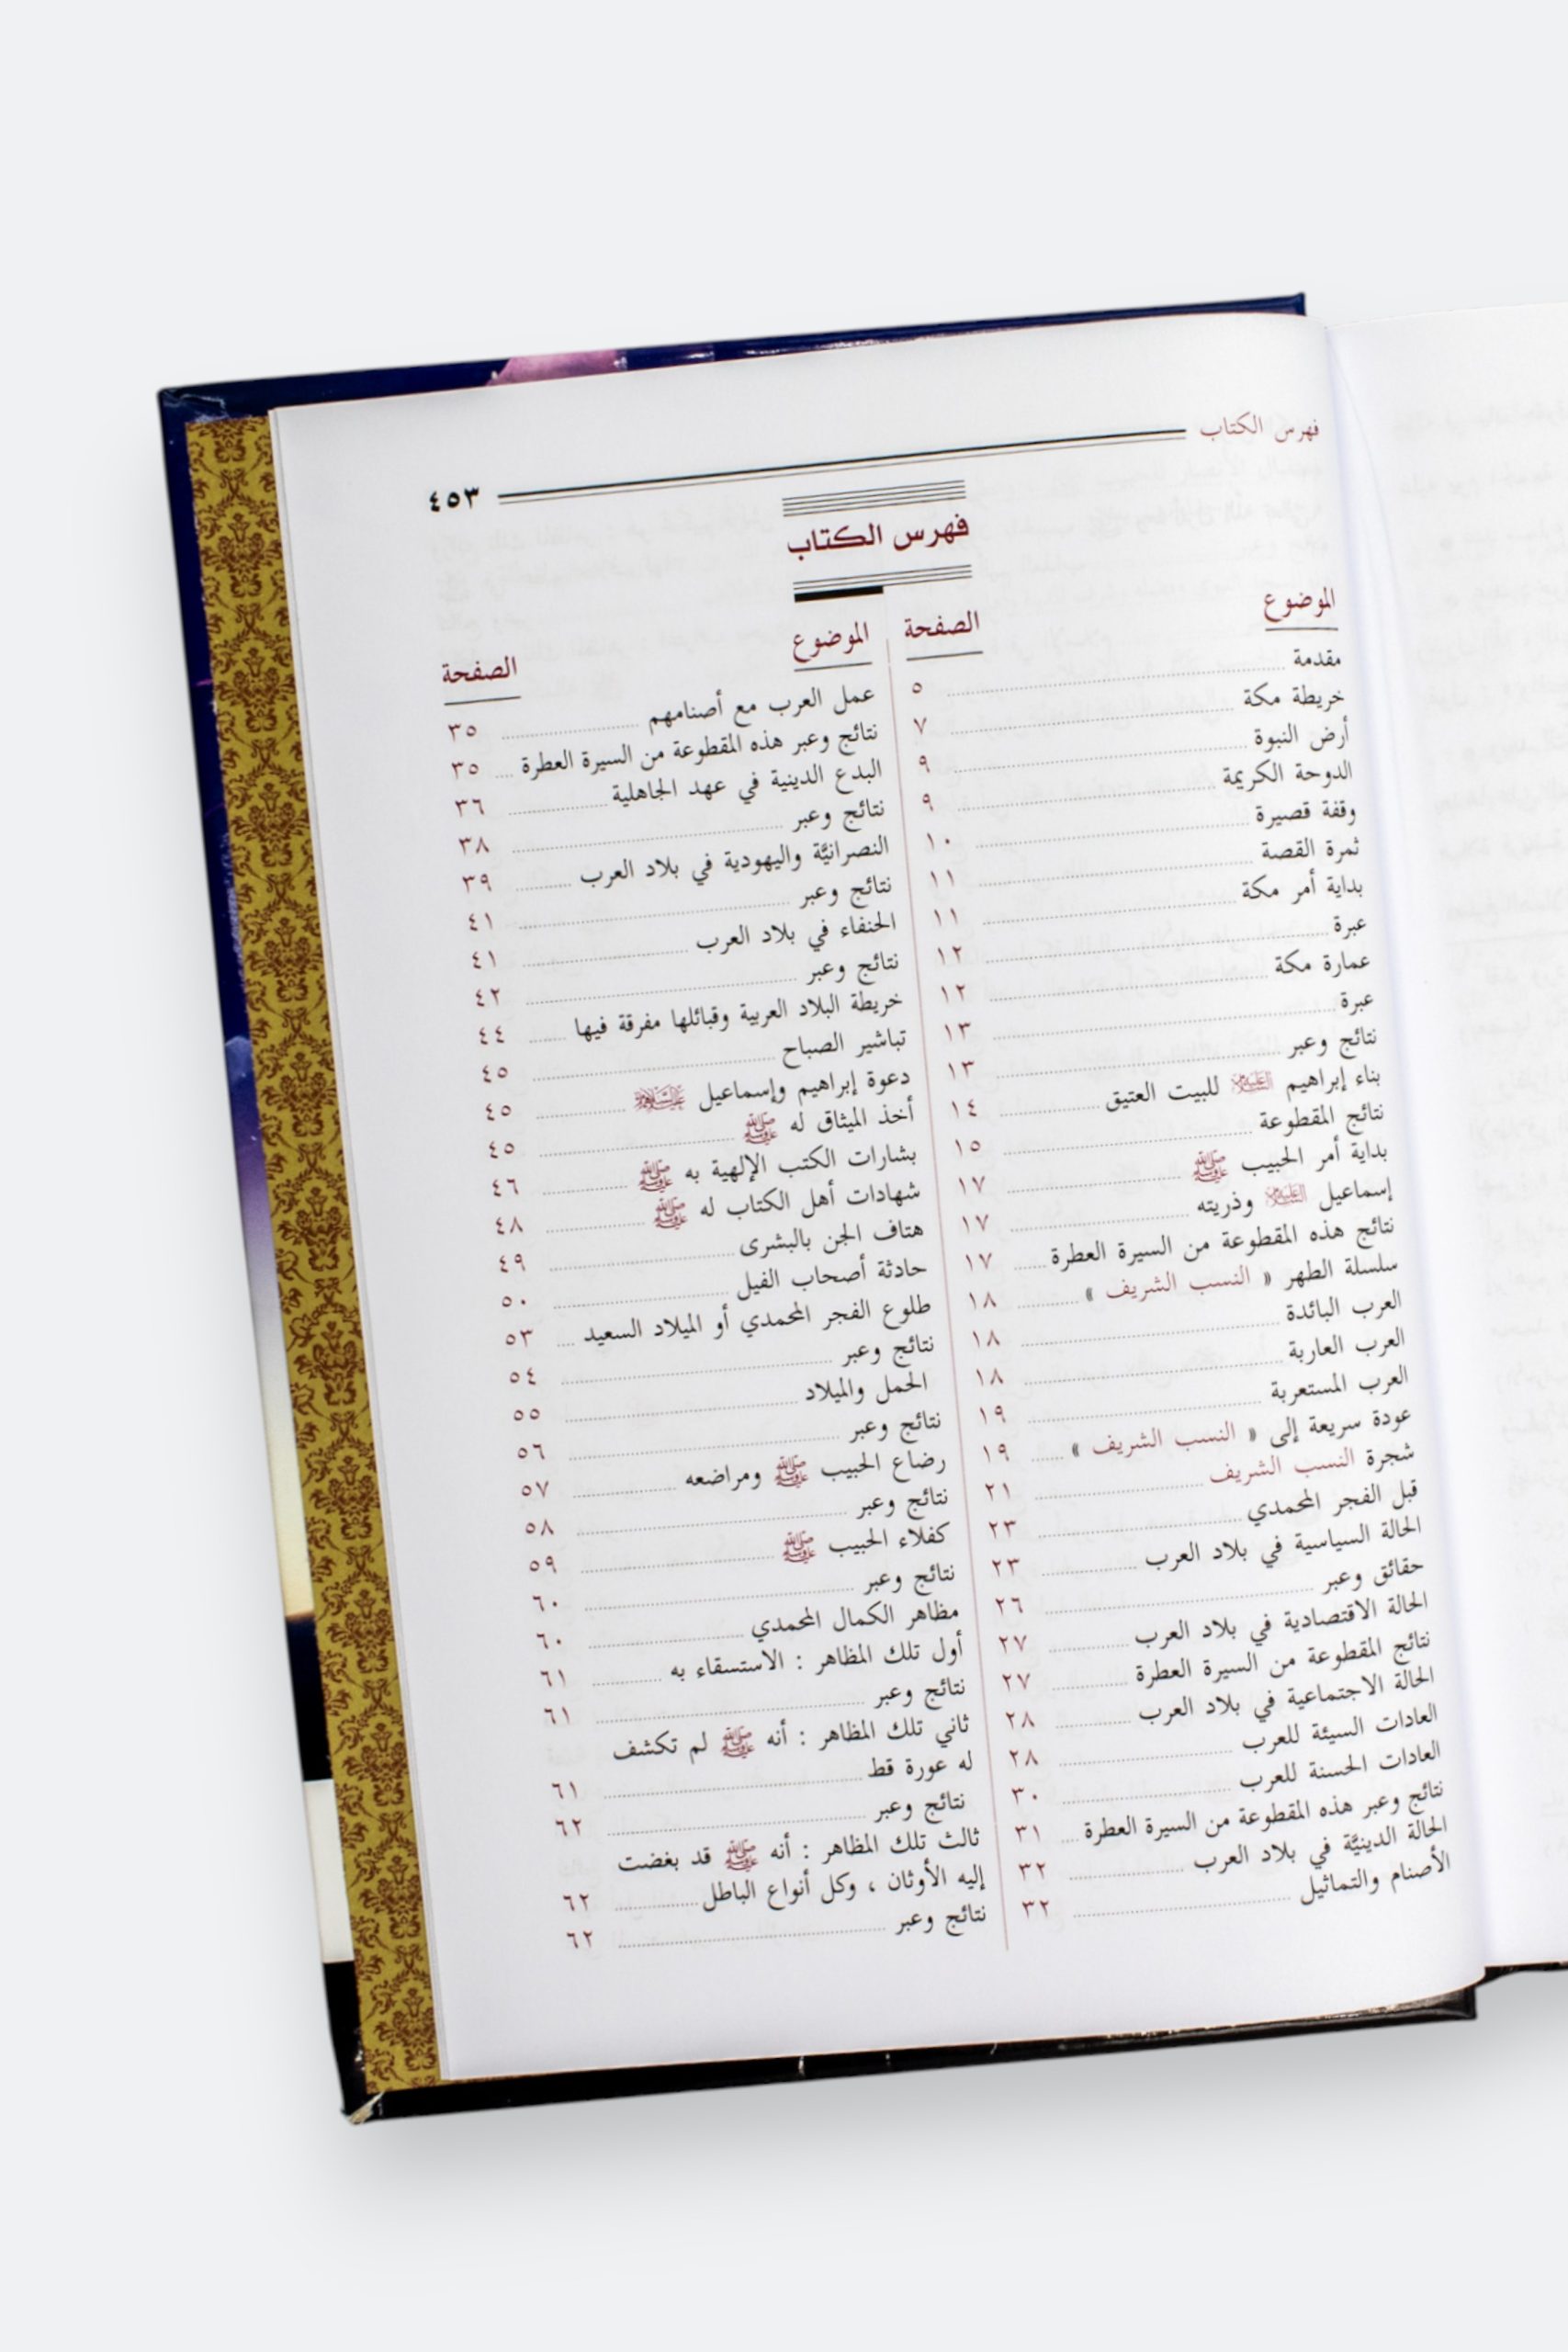 فهرس الكتاب ٤٥٣
فهرس الكتاب
الموضوع الصفحة
مقدمة ٥
خريطة مكة ٧
أرض النبوة ٩
الدوحة الكريمة ٩
وقفة قصيرة ١٠
ثمرة القصة ١١
بداية أمر مكة ١١
عبرة ١٢
عمارة مكة ١٢
عبرة ١٣
نتائج وعبر ١٣
بناء إبراهيم عليه السلام للبيت العتيق ١٤
نتائج المقطوعة ١٥
بداية أمر الحبيب ﷺ ١٧
إسماعيل عليه السلام وذريته ١٧
نتائج هذه المقطوعة من السيرة العطرة ١٧
سلسلة الطهر « النسب الشريف » ١٨
العرب البائدة ١٨
العرب العاربة ١٨
العرب المستعربة ١٩
عودة سريعة إلى « النسب الشريف » ١٩
شجرة النسب الشريف ٢١
قبل الفجر المحمدي ٢٣
الحالة السياسية في بلاد العرب ٢٣
حقائق وعبر ٢٦
الحالة الاقتصادية في بلاد العرب ٢٧
نتائج المقطوعة من السيرة العطرة ٢٧
الحالة الاجتماعية في بلاد العرب ٢٨
العادات السيئة للعرب ٢٨
العادات الحسنة للعرب ٣٠
نتائج وعبر هذه المقطوعة من السيرة العطرة ٣١
الحالة الدينيَّة في بلاد العرب ٣٢
الأصنام والتماثيل ٣٢
الموضوع الصفحة
عمل العرب مع أصنامهم ٣٥
نتائج وعبر هذه المقطوعة من السيرة العطرة ٣٥
البدع الدينية في عهد الجاهلية ٣٦
نتائج وعبر ٣٨
النصرانيَّة واليهودية في بلاد العرب ٣٩
نتائج وعبر ٤١
الحنفاء في بلاد العرب ٤١
نتائج وعبر ٤٢
خريطة البلاد العربية وقبائلها مفرقة فيها ٤٤
تباشير الصباح ٤٥
دعوة إبراهيم وإسماعيل عليهما السلام ٤٥
أخذ الميثاق له ﷺ ٤٥
بشارات الكتب الإلهية به ﷺ ٤٦
شهادات أهل الكتاب له ﷺ ٤٨
هتاف الجن بالبشرى ٤٩
حادثة أصحاب الفيل ٥٠
طلوع الفجر المحمدي أو الميلاد السعيد ٥٣
نتائج وعبر ٥٤
الحمل والميلاد ٥٥
نتائج وعبر ٥٦
رضاع الحبيب ﷺ ومراضعه ٥٧
نتائج وعبر ٥٨
كفلاء الحبيب ﷺ ٥٩
نتائج وعبر ٦٠
مظاهر الكمال المحمدي ٦٠
أول تلك المظاهر : الاستسقاء به ٦١
نتائج وعبر ٦١
ثاني تلك المظاهر : أنه ﷺ لم تكشف
له عورة قط ٦١
نتائج وعبر ٦٢
ثالث تلك المظاهر : أنه ﷺ قد بغضت
إليه الأوثان ، وكل أنواع الباطل ٦٢
نتائج وعبر ٦٢